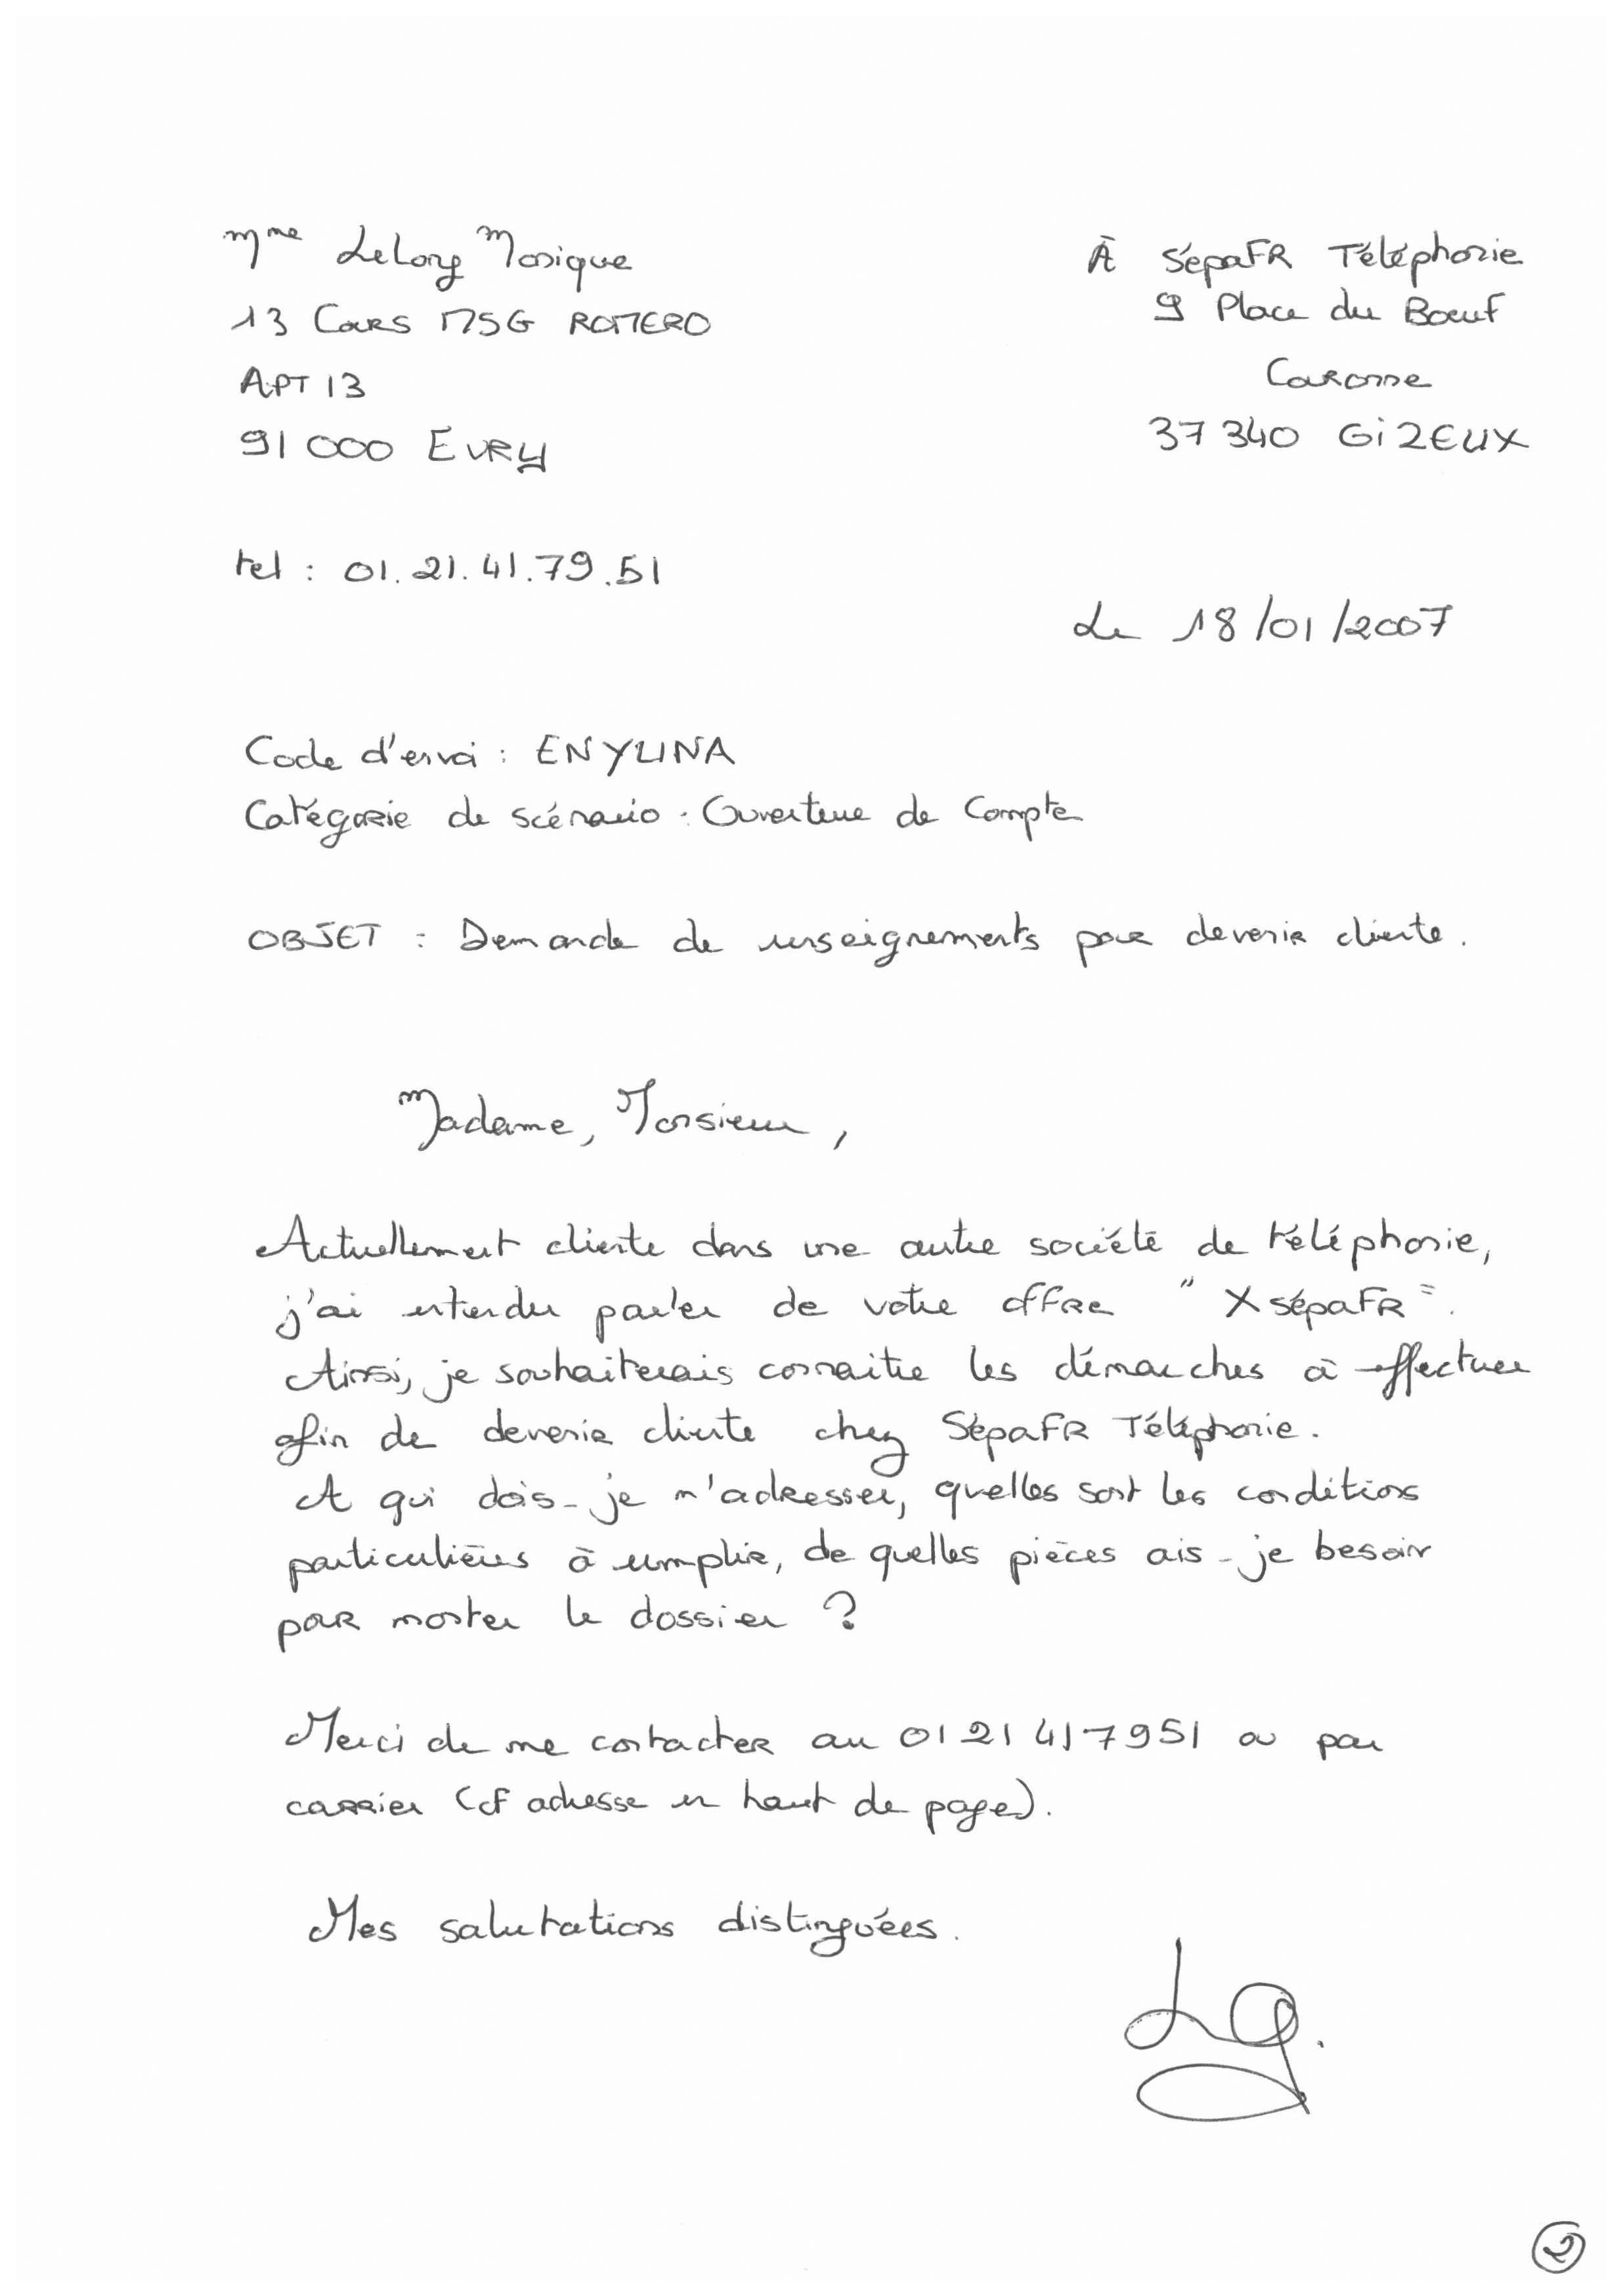 Mme LeLong Monique
13 Cours MSG ROMERO
APT 13
91 000 EVRY
tel : 01.21.41.79.51
À SépaFR Téléphonie
9 Place du Boeuf
Couronne
37 340 GiZEUX
Le 18/01/2007
Code d'envoi : ENYLINA
Catégorie de scénario : Ouverture de Compte
OBJET : Demande de renseignements pour devenir cliente.
Madame, Monsieur,
Actuellement cliente dans une autre société de téléphonie,
j'ai entendu parler de votre offre "XsépaFR".
Ainsi, je souhaiterais connaitre les démarches à effectuer
afin de devenir cliente chez SépaFR Téléphonie.
A qui dois-je m'adresser, quelles sont les conditions
particulières à remplir, de quelles pièces ais-je besoin
pour monter le dossier ?
Merci de me contacter au 0121417951 ou par
courrier (cf adresse en haut de page).
Mes salutations distinguées.
2